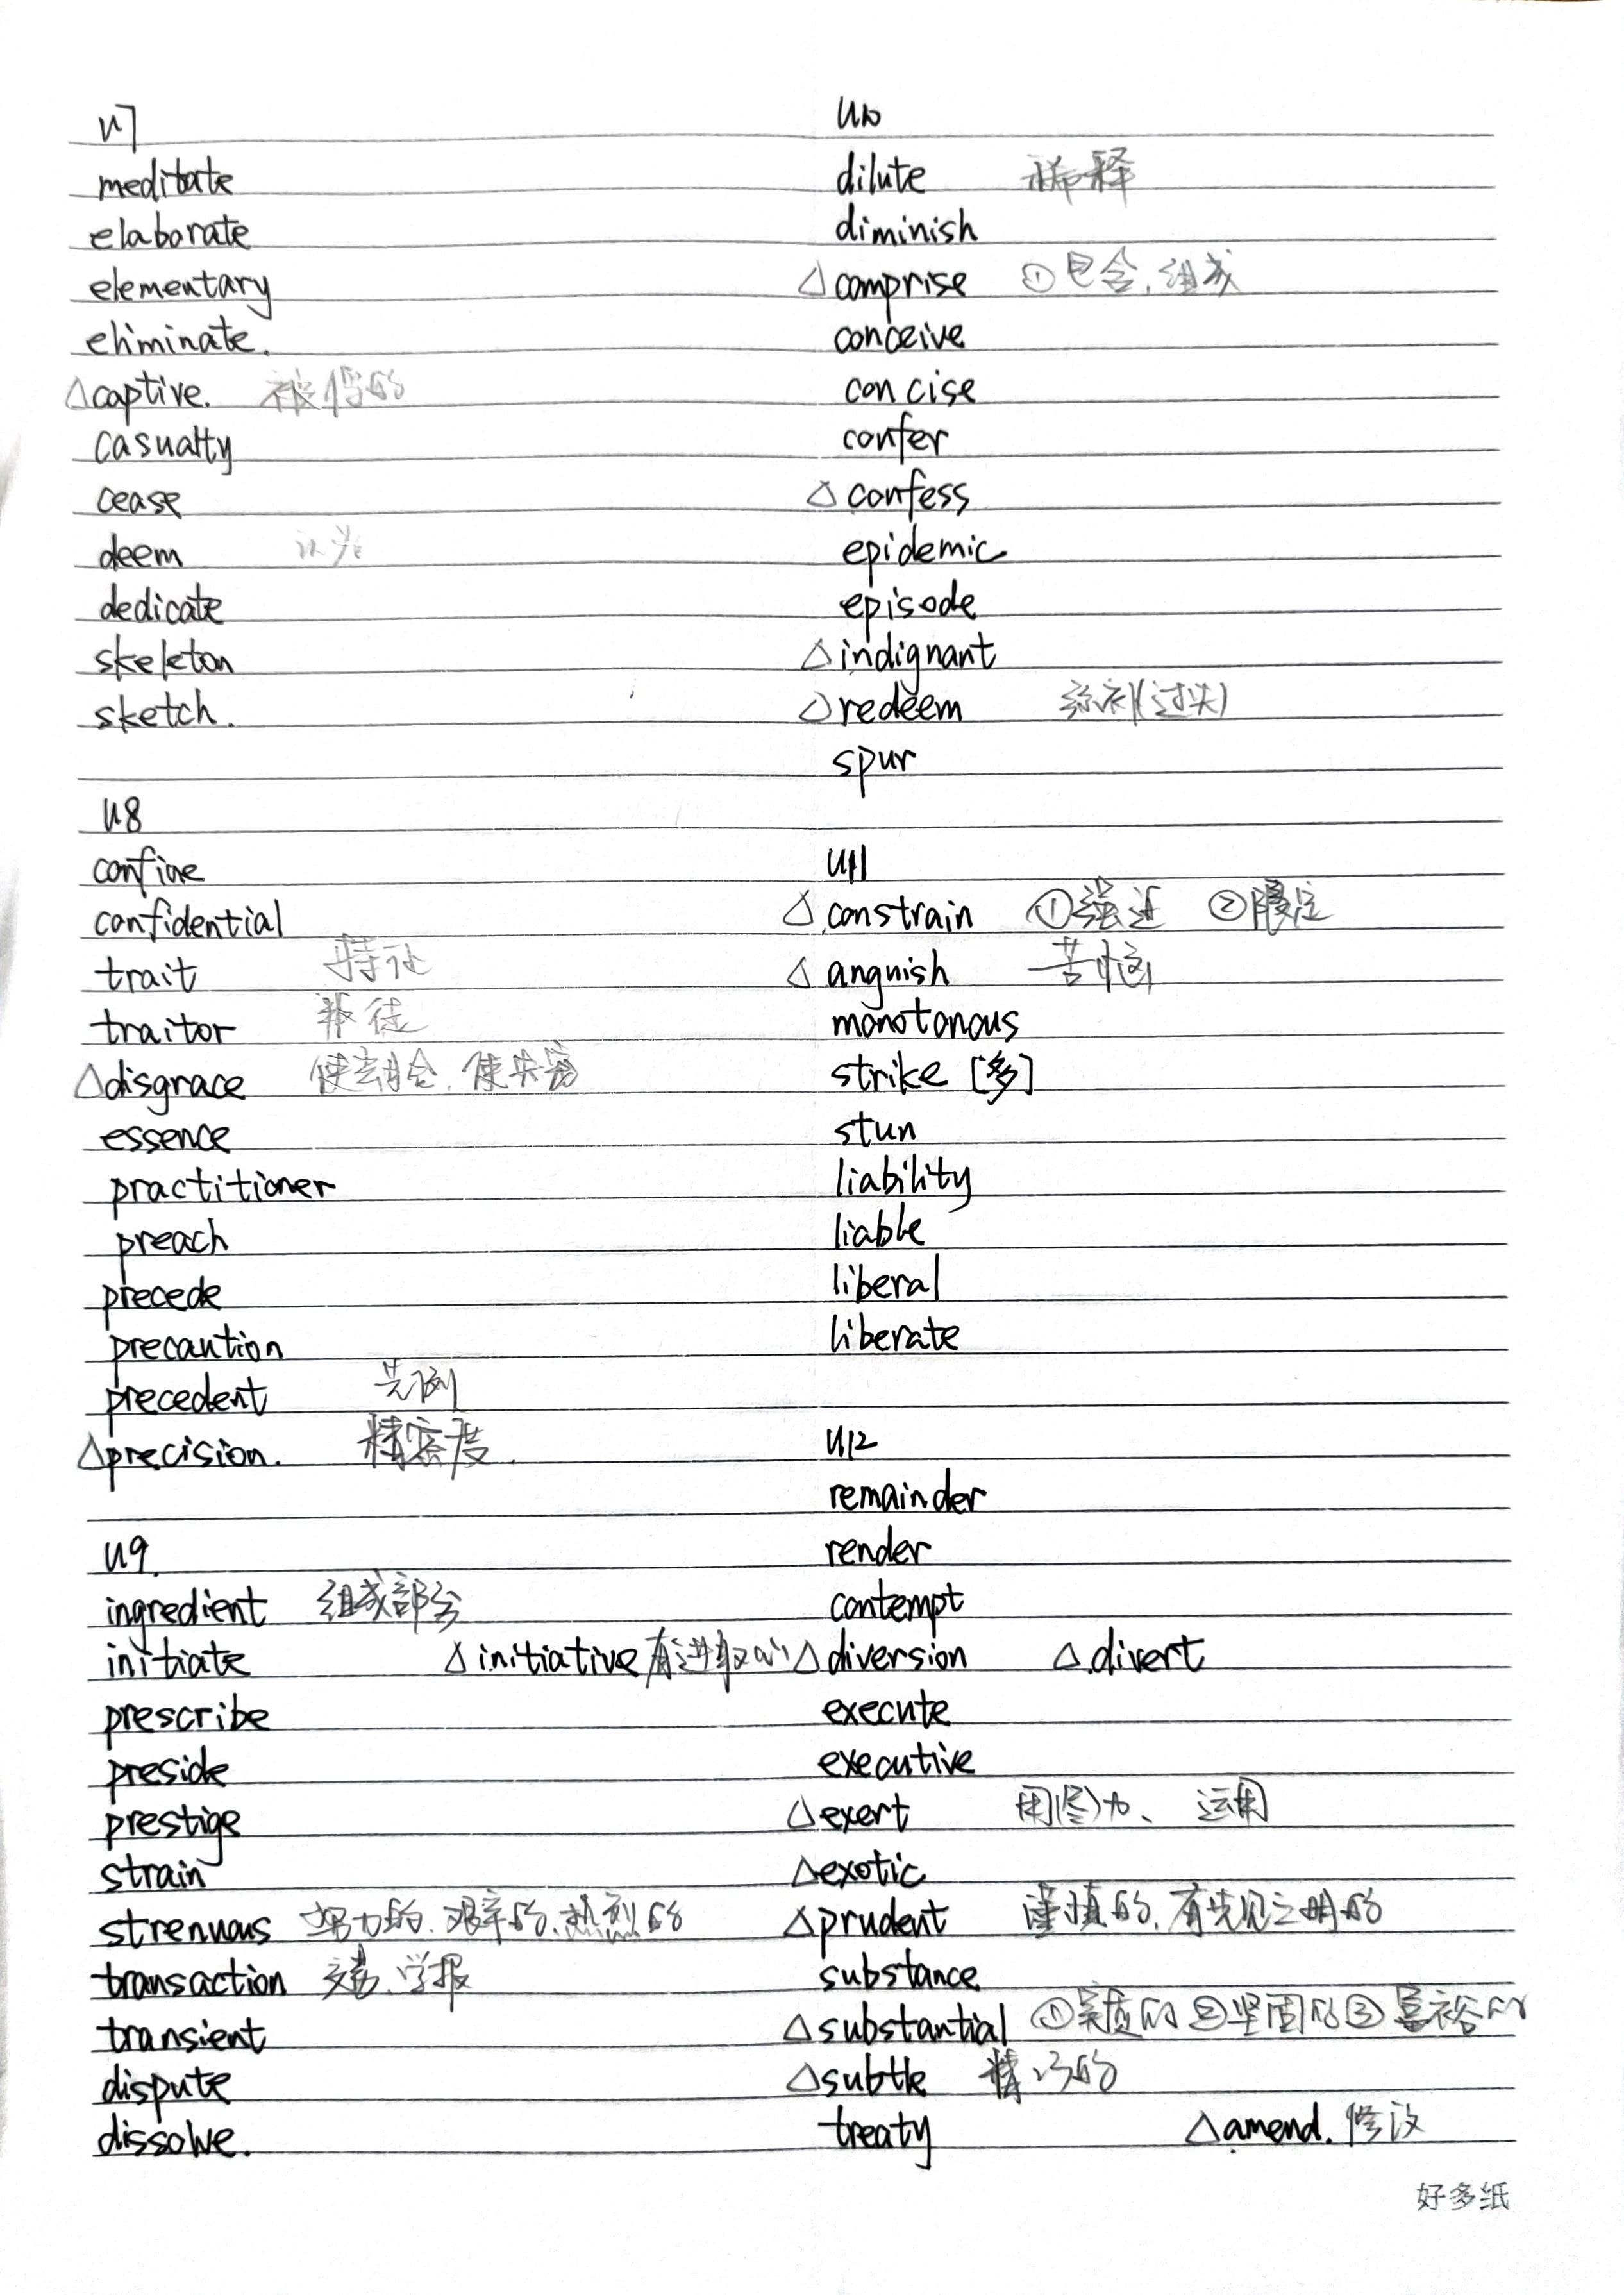 U7
meditate
elaborate
elementary
eliminate.
△captive. 被俘的
casualty
cease
deem 认为
dedicate
skeleton
sketch.
U8
confine
confidential
trait 特征
traitor 叛徒
△disgrace 使失宠
essence
practitioner
preach
precede
precaution
precedent 先例
△precision. 精密度.
U9.
ingredient 组成部分
initiate △initiative 有进取心
prescribe
preside
prestige
strain
strenuous 努力的、艰辛的、热烈的
transaction 交易、学报
transient
dispute
dissolve.
U10
dilute 稀释
diminish
△comprise ①包含,组成
conceive
concise
confer
△confess
epidemic
episode
△indignant
△redeem 弥补(过失)
spur
U11
△constrain ①强迫 ②限定
△anguish 苦恼
monotonous
strike [多]
stun
liability
liable
liberal
liberate
U12
remainder
render
contempt
△diversion △divert
execute
executive
△exert 用(尽)力、运用
△exotic
△prudent 谨慎的,有先见之明的
substance
△substantial ①实质的②坚固的③富裕的
△subtle 精巧的
treaty △amend. 修改
好多纸